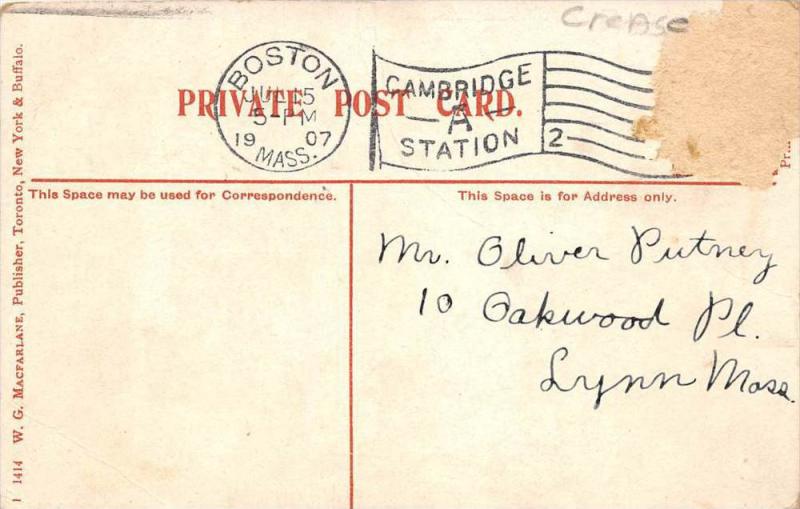 Crease
BOSTON
JUL 15
5-PM
19 07
MASS.
CAMBRIDGE
A
STATION
2
PRIVATE POST CARD.
This Space may be used for Correspondence.
This Space is for Address only.
Mr. Oliver Putney
10 Oakwood Pl.
Lynn Mass.
1 1414 W. G. MACFARLANE, Publisher, Toronto, New York & Buffalo.